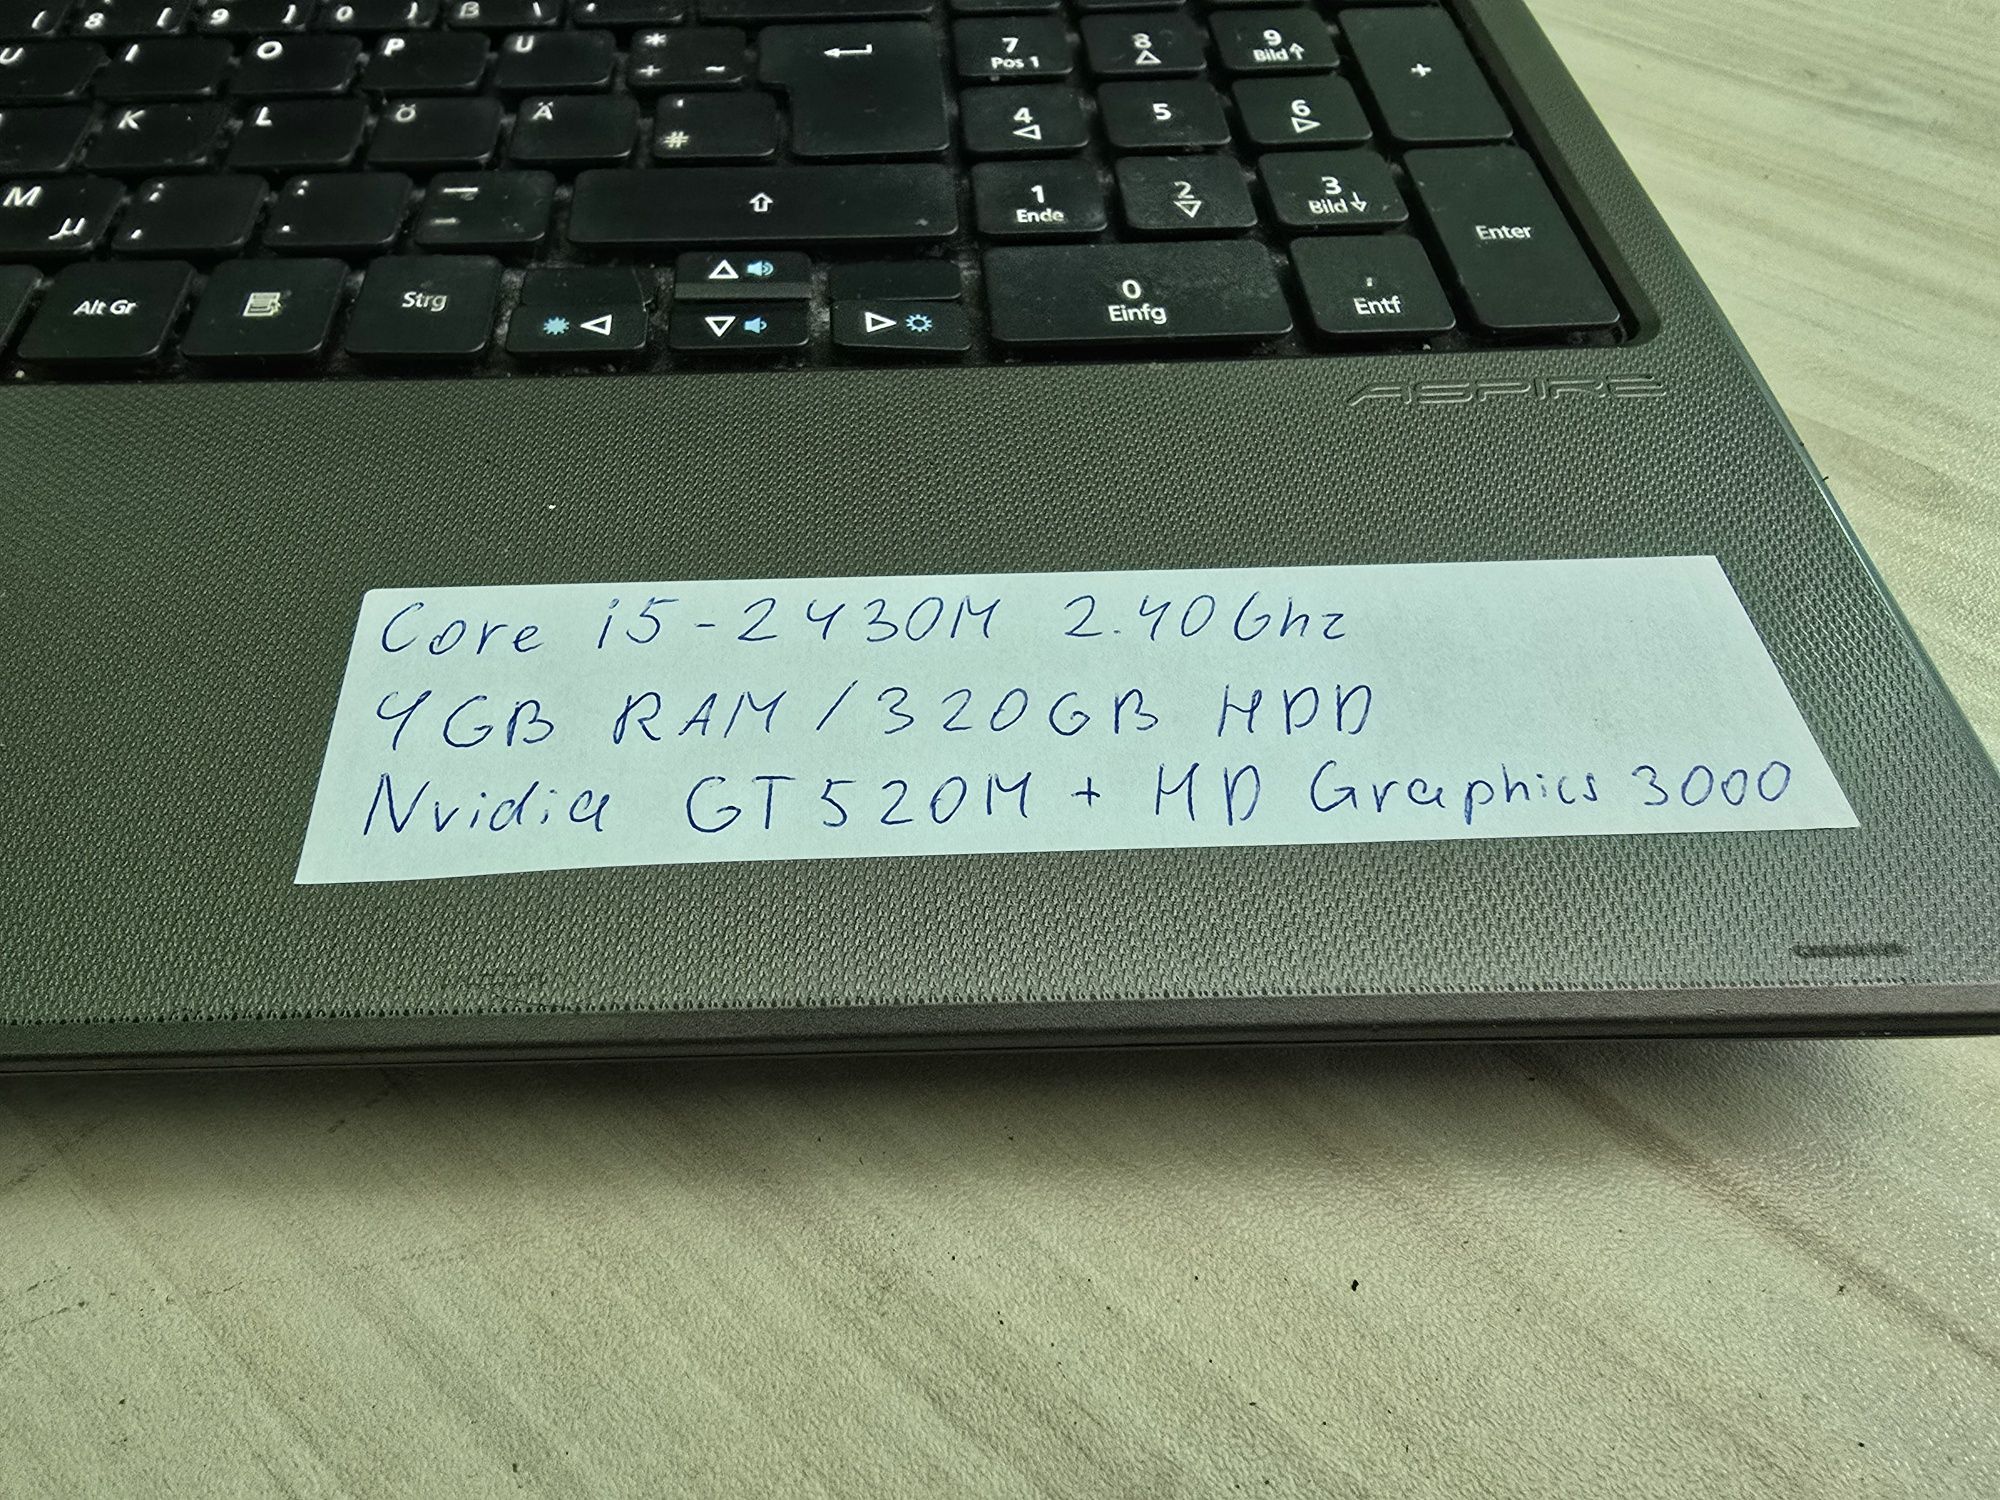 U I O P Ü * + ~
K L Ö Ä ' #
M µ ; , : . _ -
Alt Gr Strg
7 Pos 1 8 9 Bild +
4 5 6
1 Ende 2 3 Bild Enter
0 Einfg , Entf
ASPIRE
Core i5-2430M 2.40Ghz
4GB RAM / 320GB HDD
Nvidia GT520M + HD Graphics 3000